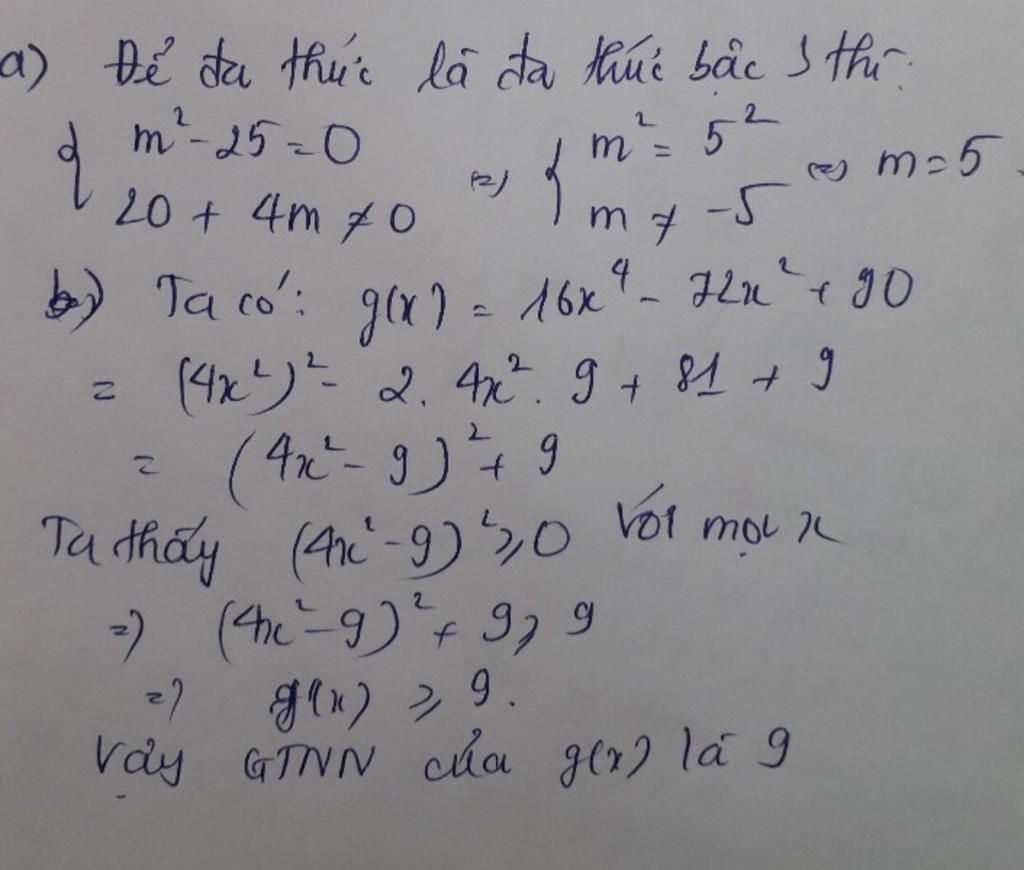 a) Để đa thức là đa thức bậc 3 thì:
{ m² - 25 = 0
20 + 4m ≠ 0 (=) { m² = 5²
m ≠ -5 (=) m = 5.
b) Ta có: g(x) = 16x⁴ - 72x² + 90
= (4x²)² - 2. 4x². 9 + 81 + 9
= (4x² - 9)² + 9
Ta thấy (4x² - 9)² ≥ 0 với mọi x
=) (4x² - 9)² + 9 ≥ 9
=) g(x) ≥ 9.
Vậy GTNN của g(x) là 9